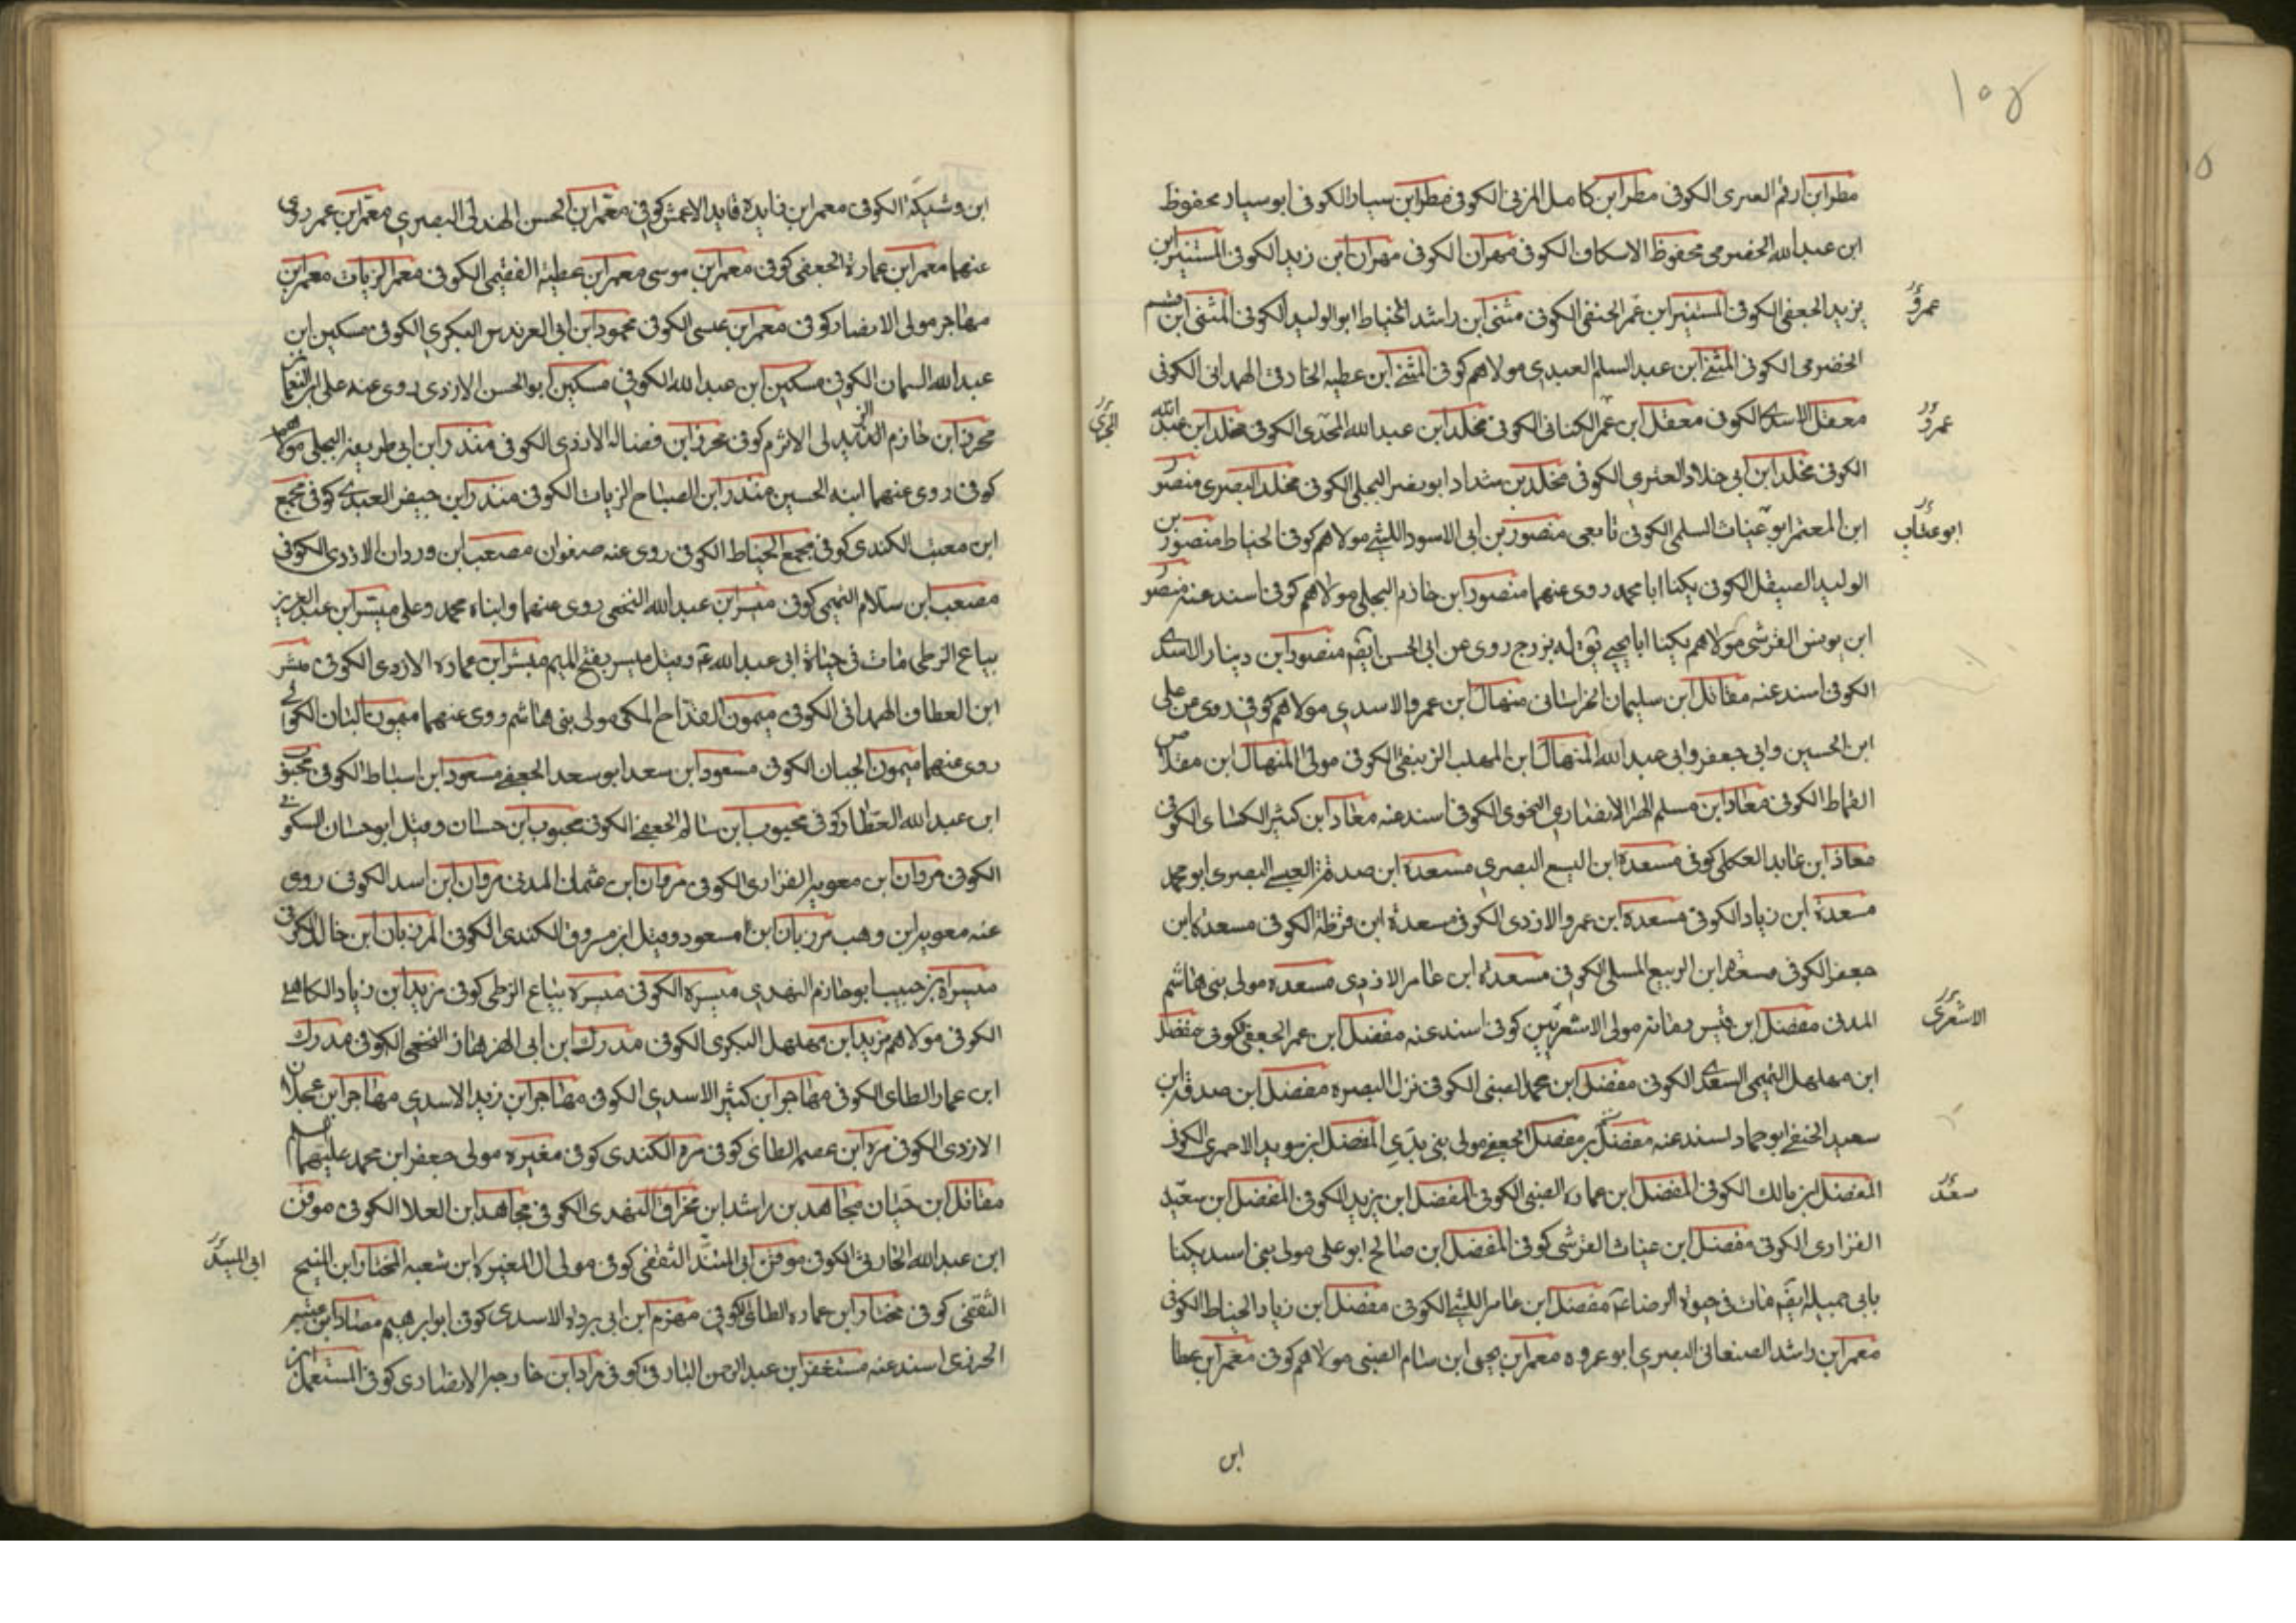 ١٠٥
مطر ابن ارقم العنزى الكوفى مطر ابن كامل المزنى الكوفى مطر ابن سيار الكوفى ابو سيار محفوظ
ابن عبدالله الحضرمى محفوظ الاسكاف الكوفى مهران الكوفى مهران ابن زيد الكوفى المستنير ابن
يزيد الجعفى الكوفى المستنير ابن عمر الحنفى الكوفى مثنى ابن راشد الحناط ابو الوليد الكوفى المثنى ابن
عمرو
الحضرمى الكوفى المثنى ابن عبد السلم العبدى مولاهم كوفى المثنى ابن عطيه الخارقى الهمدانى الكوفى
معقل الاسدى الكوفى معقل ابن عمر الكنانى الكوفى مخلد ابن عبدالله الكوفى مخلد ابن عبدالله
عمرو
الكوفى مخلد ابن ابى خلاد العنزى الكوفى مخلد بن شداد ابو بصر البجلى الكوفى مخلد البصرى منصور
ابن المعتمر ابو غياث السلمى الكوفى تابعى منصور بن ابى الاسود الليثى مولاهم كوفى الحناط منصور بن
ابو عتاب
الوليد الصيقل الكوفى يكنا ابا محمد روى عنهما منصور ابن خازم البجلى مولاهم كوفى اسند عنه منصور
ابن يونس القرشى مولاهم يكنا ابا يحيى يق له بزرج روى عن ابى الحسن ايضه منصور ابن دينار الاسدى
الكوفى اسند عنه مقاتل ابن سليمان الخراسانى منهال ابن عمرو الاسدى مولاهم كوفى روى عن على
ابن الحسين وابى جعفر وابى عبدالله المنهال ابن المهلب الكوفى مولى المنهال ابن مقلاص
القماط الكوفى معاذ ابن مسلم الهرا الانصارى النحوى الكوفى اسند عنه معاذ ابن كثير الكسائى الكوفى
معاذ ابن عابد العكلى كوفى مسعدة ابن اليسع البصرى مسعدة ابن صدقة العبسى البصرى ابو محمد
مسعدة ابن زياد الكوفى مسعدة ابن عمرو الازدى الكوفى مسعدة ابن قرظة الكوفى مسعدة ابن
جعفر الكوفى مسعدة ابن الربيع المسلى الكوفى مسعدة ابن عامر الازدى مسعده مولى بنى هاشم
المدنى مفضل ابن قيس رمانه مولى الاشعريين كوفى اسند عنه مفضل ابن عمر الجعفى كوفى مفضل
الاشعرى
ابن مهلهل التميمى السعدى الكوفى مفضل ابن محمد الضبى الكوفى نزل البصره مفضل ابن صدقه ابن
سعيد الحنفى ابو حماد اسند عنه مفضل بن مفضل الجعفى مولى بنى بدى المفضل ابن سويد الاحمرى الكوفى
المفضل ابن مالك الكوفى المفضل ابن عماره الضبى الكوفى المفضل ابن يزيد الكوفى المفضل ابن سعيد
سعد
الفزارى الكوفى مفضل ابن غياث القرشى كوفى المفضل ابن صالح ابو على مولى بنى اسد يكنا
بابى جميله ايضه مات فى حيوة الرضا ع مفضل ابن عامر الليثى الكوفى مفضل ابن زياد الحناط الكوفى
معمر ابن راشد الصنعانى البصرى ابو عروه معمر ابن يحيى ابن سام الضبى مولاهم كوفى معمر ابن عطا
ابن
ابن وشيكة الكوفى معمر ابن فايده قايد الاعمش كوفى معمر ابن الحسن الهذلى البصرى معمر ابن عمر روى
عنهما معمر ابن عمارة الجعفى كوفى معمر ابن موسى معمر ابن عطية الفقيمى الكوفى معمر الزيات معمر ابن
مهاجر مولى الانصار كوفى معمر ابن عيسى الكوفى محمود ابن ابى العرندس البكرى الكوفى مسكين ابن
عبدالله السمان الكوفى مسكين ابن عبدالله الكوفى مسكين ابو الحسن الازدى روى عنه على ابن النعمان
محرز ابن خازم الاثرم كوفى محرز ابن فضاله الازدى الكوفى منذر ابن ابى طريفه البجلى مولاهم
كوفى روى عنهما ابنه الحسين منذر ابن الصباح الزيات الكوفى منذر ابن جيفر العبدى كوفى مجمع
ابن معتب الكندى كوفى مجمع الحناط الكوفى روى عنه صفوان مصعب ابن وردان الازدى الكوفى
مصعب ابن سلام التميمى كوفى ميسر ابن عبدالله النخعى روى عنهما وابناه محمد وعلى ميسر ابن عبد العزيز
بياع الزطى مات فى حياة ابى عبدالله ع وقيل ميسر بفتح الميم مبشر ابن عماره الازدى الكوفى مبشر
ابن العطاف الهمدانى الكوفى ميمون القداح المكى مولى بنى هاشم روى عنهما ميمون البان الكوفى
روى عنهما ميمون الجبان الكوفى مسعود ابن سعد ابو سعد الجعفى مسعود ابن اسباط الكوفى محبوب
ابن عبدالله العطار كوفى محبوب ابن سالم الجعفى الكوفى محبوب ابن حسان وقيل ابو حسان السكونى
الكوفى مروان ابن معويه الفزارى الكوفى مروان ابن عثمان المدنى مروان ابن اسد الكوفى روى
عنه معويه ابن وهب مرزبان ابن مسعود وقيل ابن مسروق الكندى الكوفى المرزبان ابن خالد الكوفى
ميسرة بن حبيب ابو خازم النهدى ميسره الكوفى ميسره بياع الزطى كوفى مزيد ابن زياد الكاهلى
الكوفى مولاهم مزيد ابن مهلهل البكرى الكوفى مدرك ابن ابى الهزهاز النخعى الكوفى مدرك
ابن عمار الطائى الكوفى مهاجر ابن كثير الاسدى الكوفى مهاجر ابن زيد الاسدى مهاجر ابن عجلان
الازدى الكوفى مرة ابن عصم الطائى كوفى مره الكندى كوفى مغيره مولى جعفر ابن محمد عليهما السلم
مقاتل ابن حيان مجاهد بن راشد ابن مخراق النهدى الكوفى مجاهد ابن العلا الكوفى موفق
ابن عبدالله الحارثى الكوفى موفق ابى الثقفى كوفى مولى ال المغيره ابن شعبه المختار ابن
الثقفى كوفى مختار ابن عماره الطائى الكوفى مهزم ابن ابى برده الاسدى كوفى ابو ابرهيم مصاد ابن
الجزرى اسند عنه مستغفر ابن عبد الرحمن البارقى كوفى مراد ابن خارجه الانصارى كوفى المستهل ابن